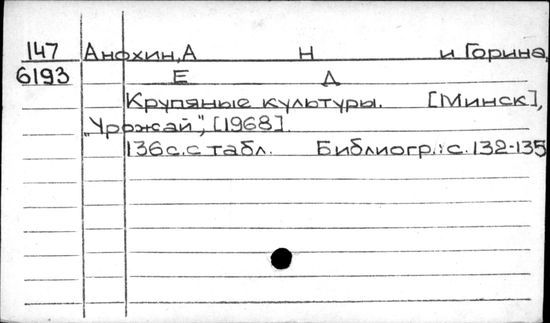 147 Анохин, А Н и Горина,
6193 Е Д
Крупяные культуры. [Минск],
"Урожай", [1968].
136 с. с табл. Библиогр.: с. 132-135